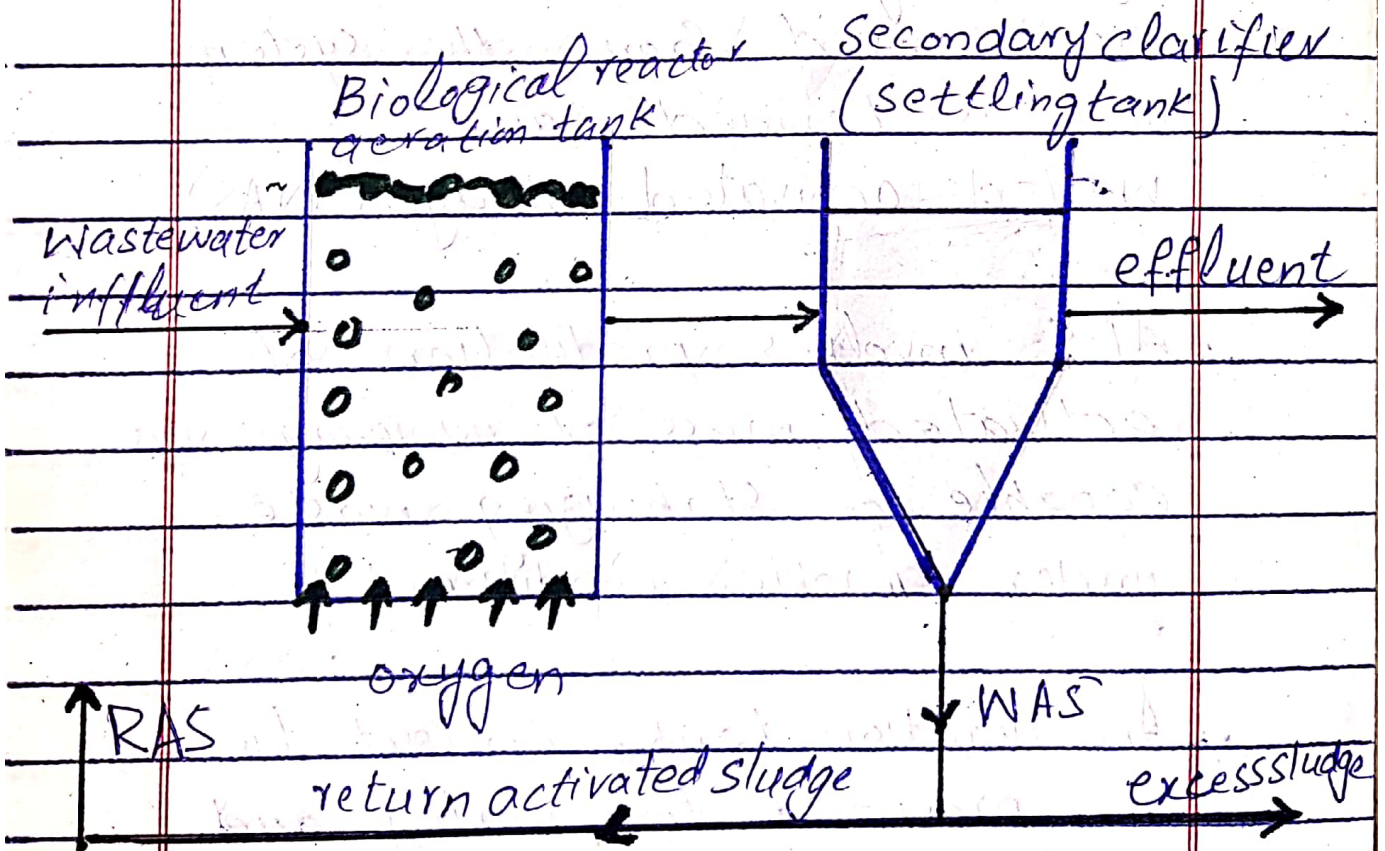 Biological reactor
aeration tank
Secondary clarifier
(settling tank)
Wastewater
inffluent
effluent
oxygen
WAS
RAS
return activated sludge
excesssludge